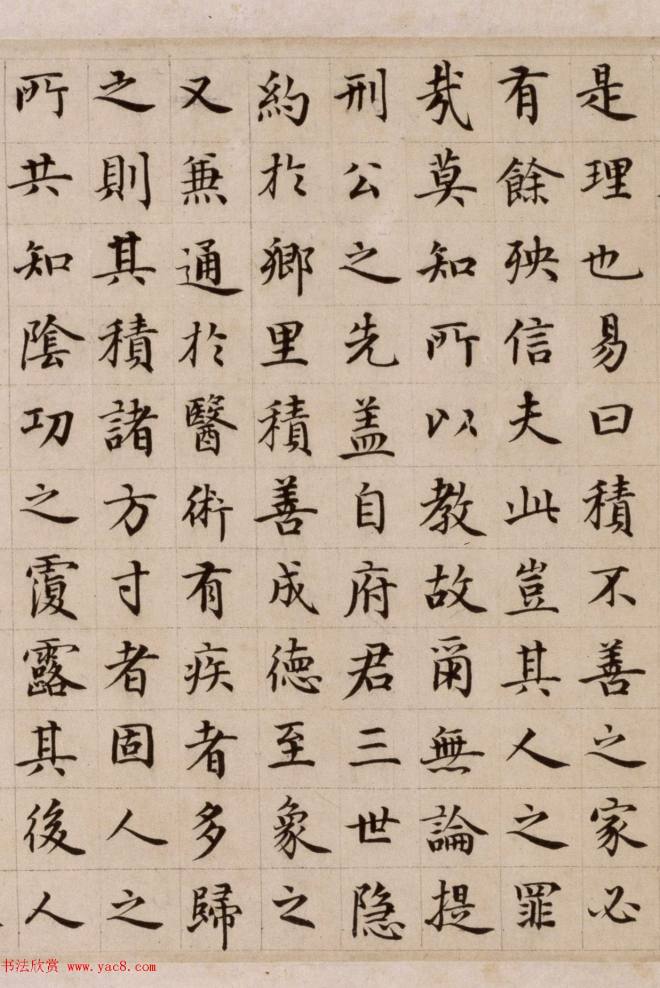 是理也易曰積不善之家必
有餘殃信夫此豈其人之罪
㦲莫知所以教故爾無論提
刑公之先盖自府君三世隐
約於鄉里積善成德至象之
又兼通於醫術有疾者多歸
之則其積諸方寸者固人之
所共知陰功之覆露其後人
书法欣赏 www.yac8.com